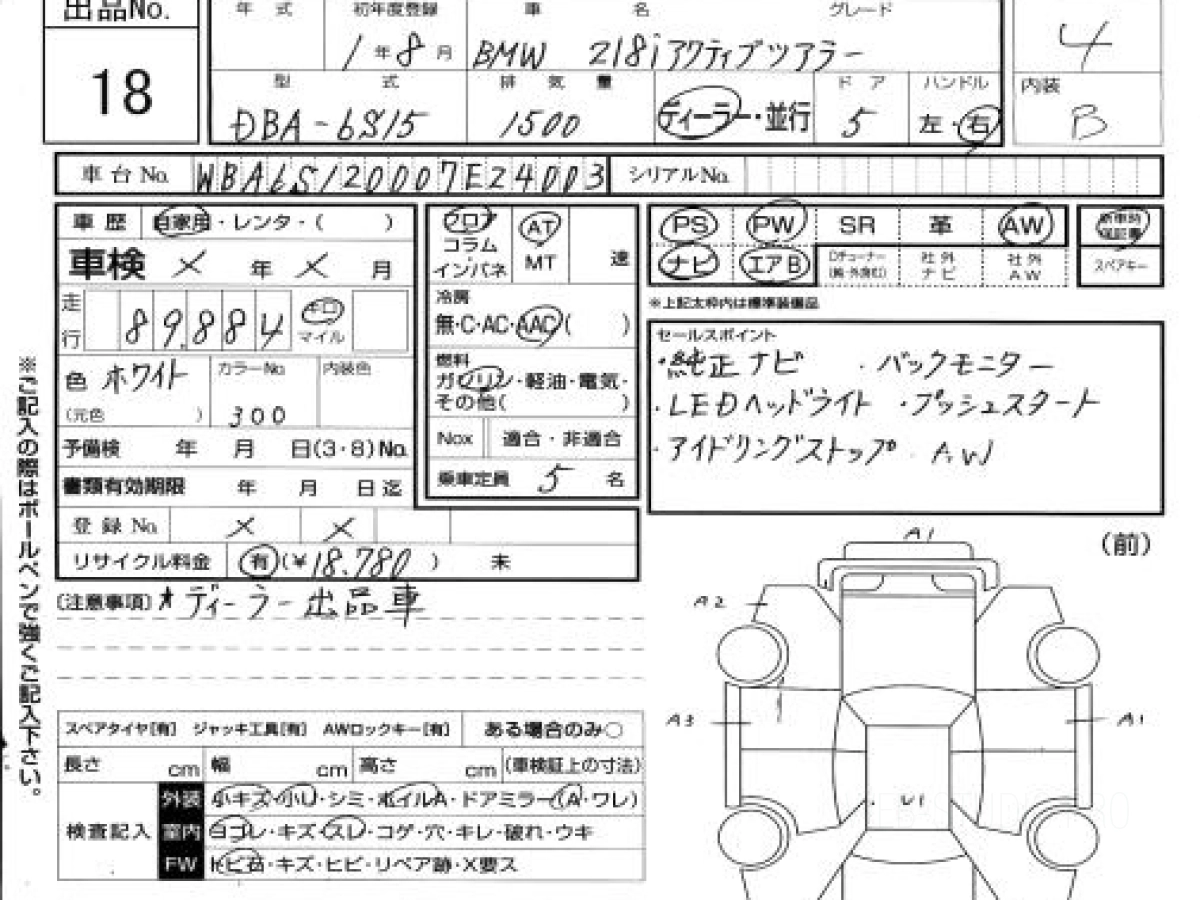 出品No. 年 式 初年度登録 車 名 グレード
18 1 年 8 月 BMW 218i アクティブツアラー 4
型 式 排 気 量 ド ア ハンドル 内装
DBA-6S15 1500 ディーラー・並行 5 左・右 B
車 台 No. WBA6S120007E24003 シリアルNo.
車 歴 自家用・レンタ・( )
車検 × 年 × 月
走行 89,884 キロ マイル
色 ホワイト カラーNo. 300 内装色
(元色 )
予備検 年 月 日(3・8)No.
書類有効期限 年 月 日迄
登 録 No. × ×
リサイクル料金 有 (¥18.780 ) 未
フロア コラム インパネ AT MT 速
冷房
無・C・AC・AAC( )
燃料
ガソリン・軽油・電気・
その他( )
Nox 適合・非適合
乗車定員 5 名
PS PW SR 革 AW 新車時保証書
ナビ エアB Dチューナー 社外ナビ 社外AW スペアキー
※上記太枠内は標準装備品
セールスポイント
・純正ナビ ・バックモニター
・LEDヘッドライト ・プッシュスタート
・アイドリングストップ AW
(注意事項) ★ディーラー出品車
※ご記入の際はボールペンで強くご記入下さい。
スペアタイヤ[有] ジャッキ工具[有] AWロックキー[有] ある場合のみ○
長さ cm 幅 cm 高さ cm (車検証上の寸法)
検査記入
外装 小キズ・小U・シミ・ホイルA・ドアミラー(A・ワレ)
室内 ヨゴレ・キズ・スレ・コゲ・穴・キレ・破れ・ウキ
FW トビ石・キズ・ヒビ・リペア跡・X要ス
(前)
A1
A2
A3 A1
U1